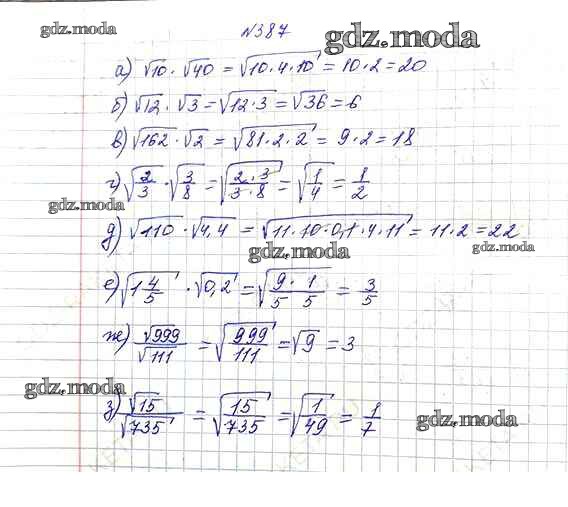 gdz.moda
№387
gdz.moda
а) √10 · √40 = √(10·4·10) = 10·2 = 20
б) √12 · √3 = √(12·3) = √36 = 6
в) √162 · √2 = √(81·2·2) = 9·2 = 18
г) √(2/3) · √(3/8) = √((2·3)/(3·8)) = √(1/4) = 1/2
gdz.moda
д) √110 · √4,4 = √(11·10·0,1·4·11) = 11·2 = 22
gdz.moda
gdz.moda
е) √(1 4/5) · √0,2 = √(9/5 · 1/5) = 3/5
ж) √999/√111 = √(999/111) = √9 = 3
gdz.moda
з) √15/√735 = √(15/735) = √(1/49) = 1/7
gdz.moda